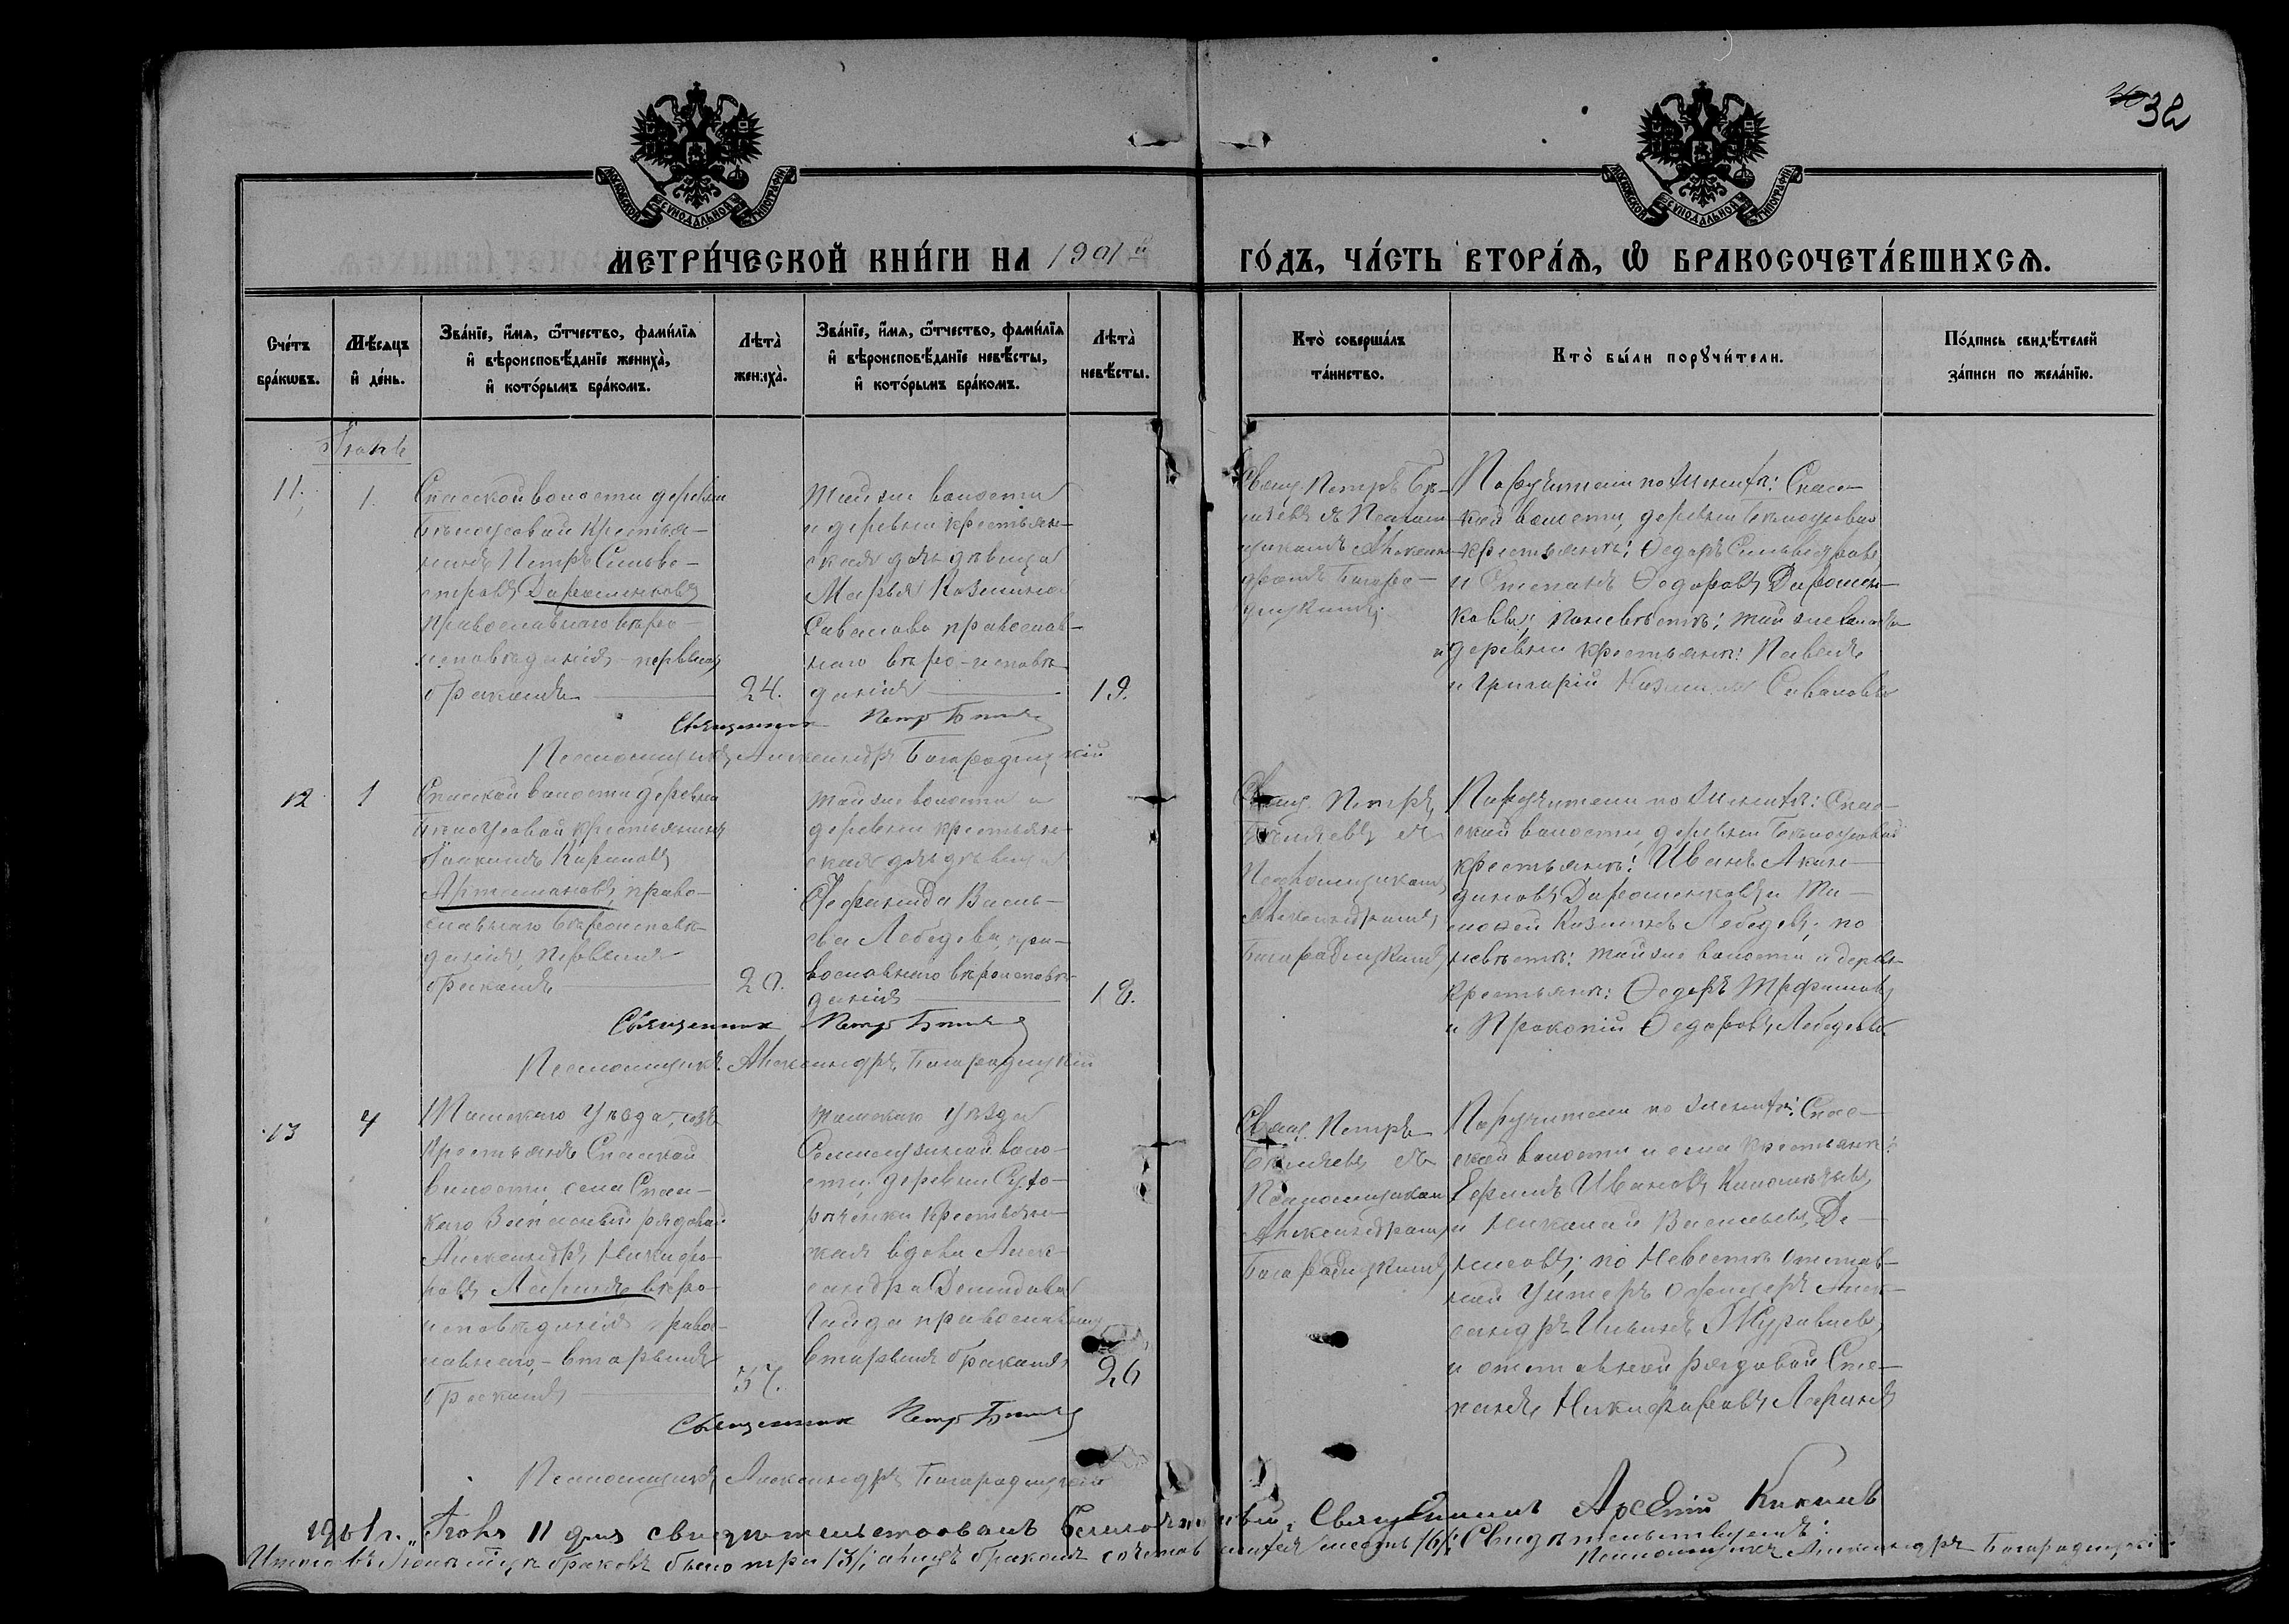 32
МОСКОВСКОЙ СѴНОДАЛЬНОЙ ТИПОГРАФІИ
МОСКОВСКОЙ СѴНОДАЛЬНОЙ ТИПОГРАФІИ
МЕТРИ́ЧЕСКОЙ КНИ́ГИ НА 1901й
ГО́ДЪ, ЧА́СТЬ ВТОРА́Ѧ, Ѡ БРАКОСОЧЕТА́ВШИХСѦ.
Сче́тъ
бра́кѡвъ.
Мѣ́сяцъ
и҆ де́нь.
Зва́нїе, и҆́мѧ, ѻ҆́тчество, фами́лїѧ
и҆ вѣроисповѣ́данїе жениха̀,
и҆ кото́рымъ бра́комъ.
Лѣта̀
жениха̀.
Зва́нїе, и҆́мѧ, ѻ҆́тчество, фами́лїѧ
и҆ вѣроисповѣ́данїе невѣ́сты,
и҆ кото́рымъ бра́комъ.
Лѣта̀
невѣ́сты.
Кто̀ соверша́лъ
та́инство.
Кто̀ бы́ли порꙋчи́тели.
По́дпись свидѣ́телей
за́писи по жела́нїю.
Іюнь
11.
1.
Спасской волости деревни
Бѣлоусовой крестья-
нинъ Петръ Сильве-
стровъ Дарошенковъ
православнаго вѣро-
исповѣданія – первымъ
бракомъ
24.
той же волости
и деревни крестьян-
ская дочь дѣвица
Марья Козмина
Савалова православ-
наго вѣро-исповѣ
данія
19.
Свящ. Петръ Бѣ-
ляевъ съ Псалом-
щикомъ Алексан-
дромъ Богоро-
дицкимъ.
Поручители по женихѣ: Спас-
кой волости, деревни Бѣлоусовой
крестьяне: Ѳедоръ Сильвестровъ
и Степанъ Ѳедоровъ Дарошен-
ковы; по невѣстѣ: той же волости
и деревни крестьяне: Павелъ
и Григорій Козмины Саваловы
Священник Петр Бѣляев
Псаломщикъ Александръ Богородицкій
12
1
Спасской волости деревни
Бѣлоусовой крестьянинъ
Артамоновъ, право-
славнаго вѣроисповѣ-
данія, первымъ
бракомъ
20.
той же волости и
деревни крестьян-
ская дочь дѣвица
Васильева Лебедева, пра-
вославнаго вѣроисповѣ-
данія
18.
Свящ. Петръ
Бѣляевъ съ
Псаломщикомъ
Александромъ
Богородицкимъ
Поручители по женихѣ: Спас-
ской волости, деревни Бѣлоусовой
крестьяне: Иванъ Акин-
диновъ Дарошенковъ и Ти-
мофей Козминъ Лебедевъ; по
невѣстѣ: той же волости и деревни
крестьяне: Ѳедоръ Трофимовъ
и Прокопій Ѳедоровъ Лебедевы
Священник Петр Бѣляев
Псаломщикъ Александръ Богородицкій
13
4
Томскаго уѣзда, изъ
крестьянъ Спасской
волости, села Спас-
каго Запасный рядовой
Александръ Никифо-
ровъ Ларинъ вѣро-
исповѣданія право-
славнаго, – вторымъ
бракомъ
37.
Томскаго уѣзда
воло-
сти, деревни
крестьян-
ская вдова Алек-
сандра Демидова
православнаго
вторымъ бракомъ
26
Свящ. Петръ
Бѣляевъ съ
Псаломщикомъ
Александромъ
Богородицкимъ
Поручители по женихѣ: Спас-
ской волости и села крестьяне:
Ефимъ Ивановъ
и Николай Васильевъ Де-
нисовъ; по невѣстѣ отстав-
ной унтеръ офицеръ Алек-
сандръ Ильинъ Журавлевъ
и отставной рядовой Сте-
панъ Никифоровъ Ларинъ
Священник Петр Бѣляев
Псаломщикъ Александръ Богородицкій
1901 г. Іюня 11 дня свидѣтельствовалъ Благочинный, Священникъ Арсеній Кикинъ
Итого въ Іюнѣ мѣсяцѣ браковъ было три /3/; а лицъ бракомъ сочетавшихся шесть /6/. Свидѣтельствуемъ:
Псаломщикъ Александръ Богородицкій.